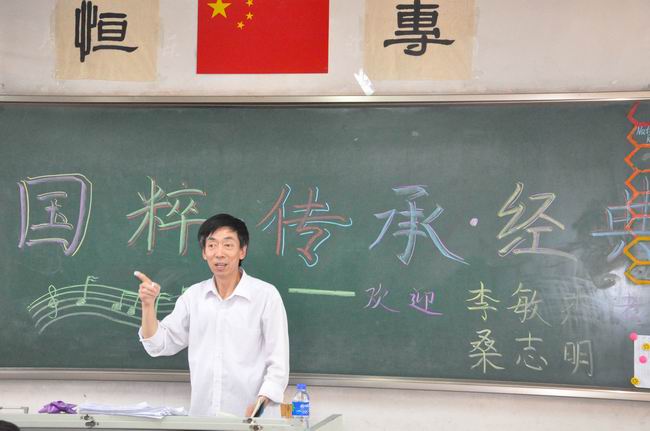 恒 專
国粹传承·经典
——欢迎 李敏
桑志明